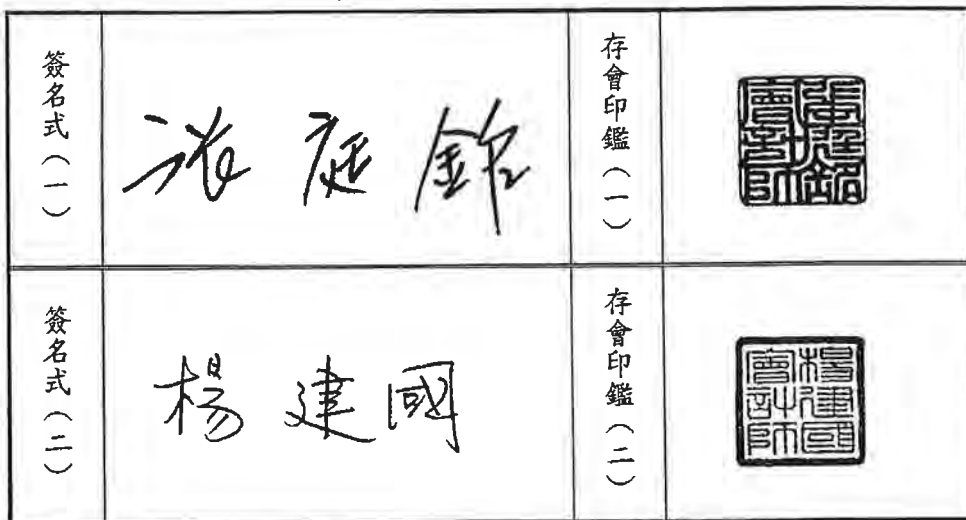 簽名式（一）
張庭銘
存會印鑑（一）
張庭銘會計師
簽名式（二）
楊建國
存會印鑑（二）
楊建國會計師